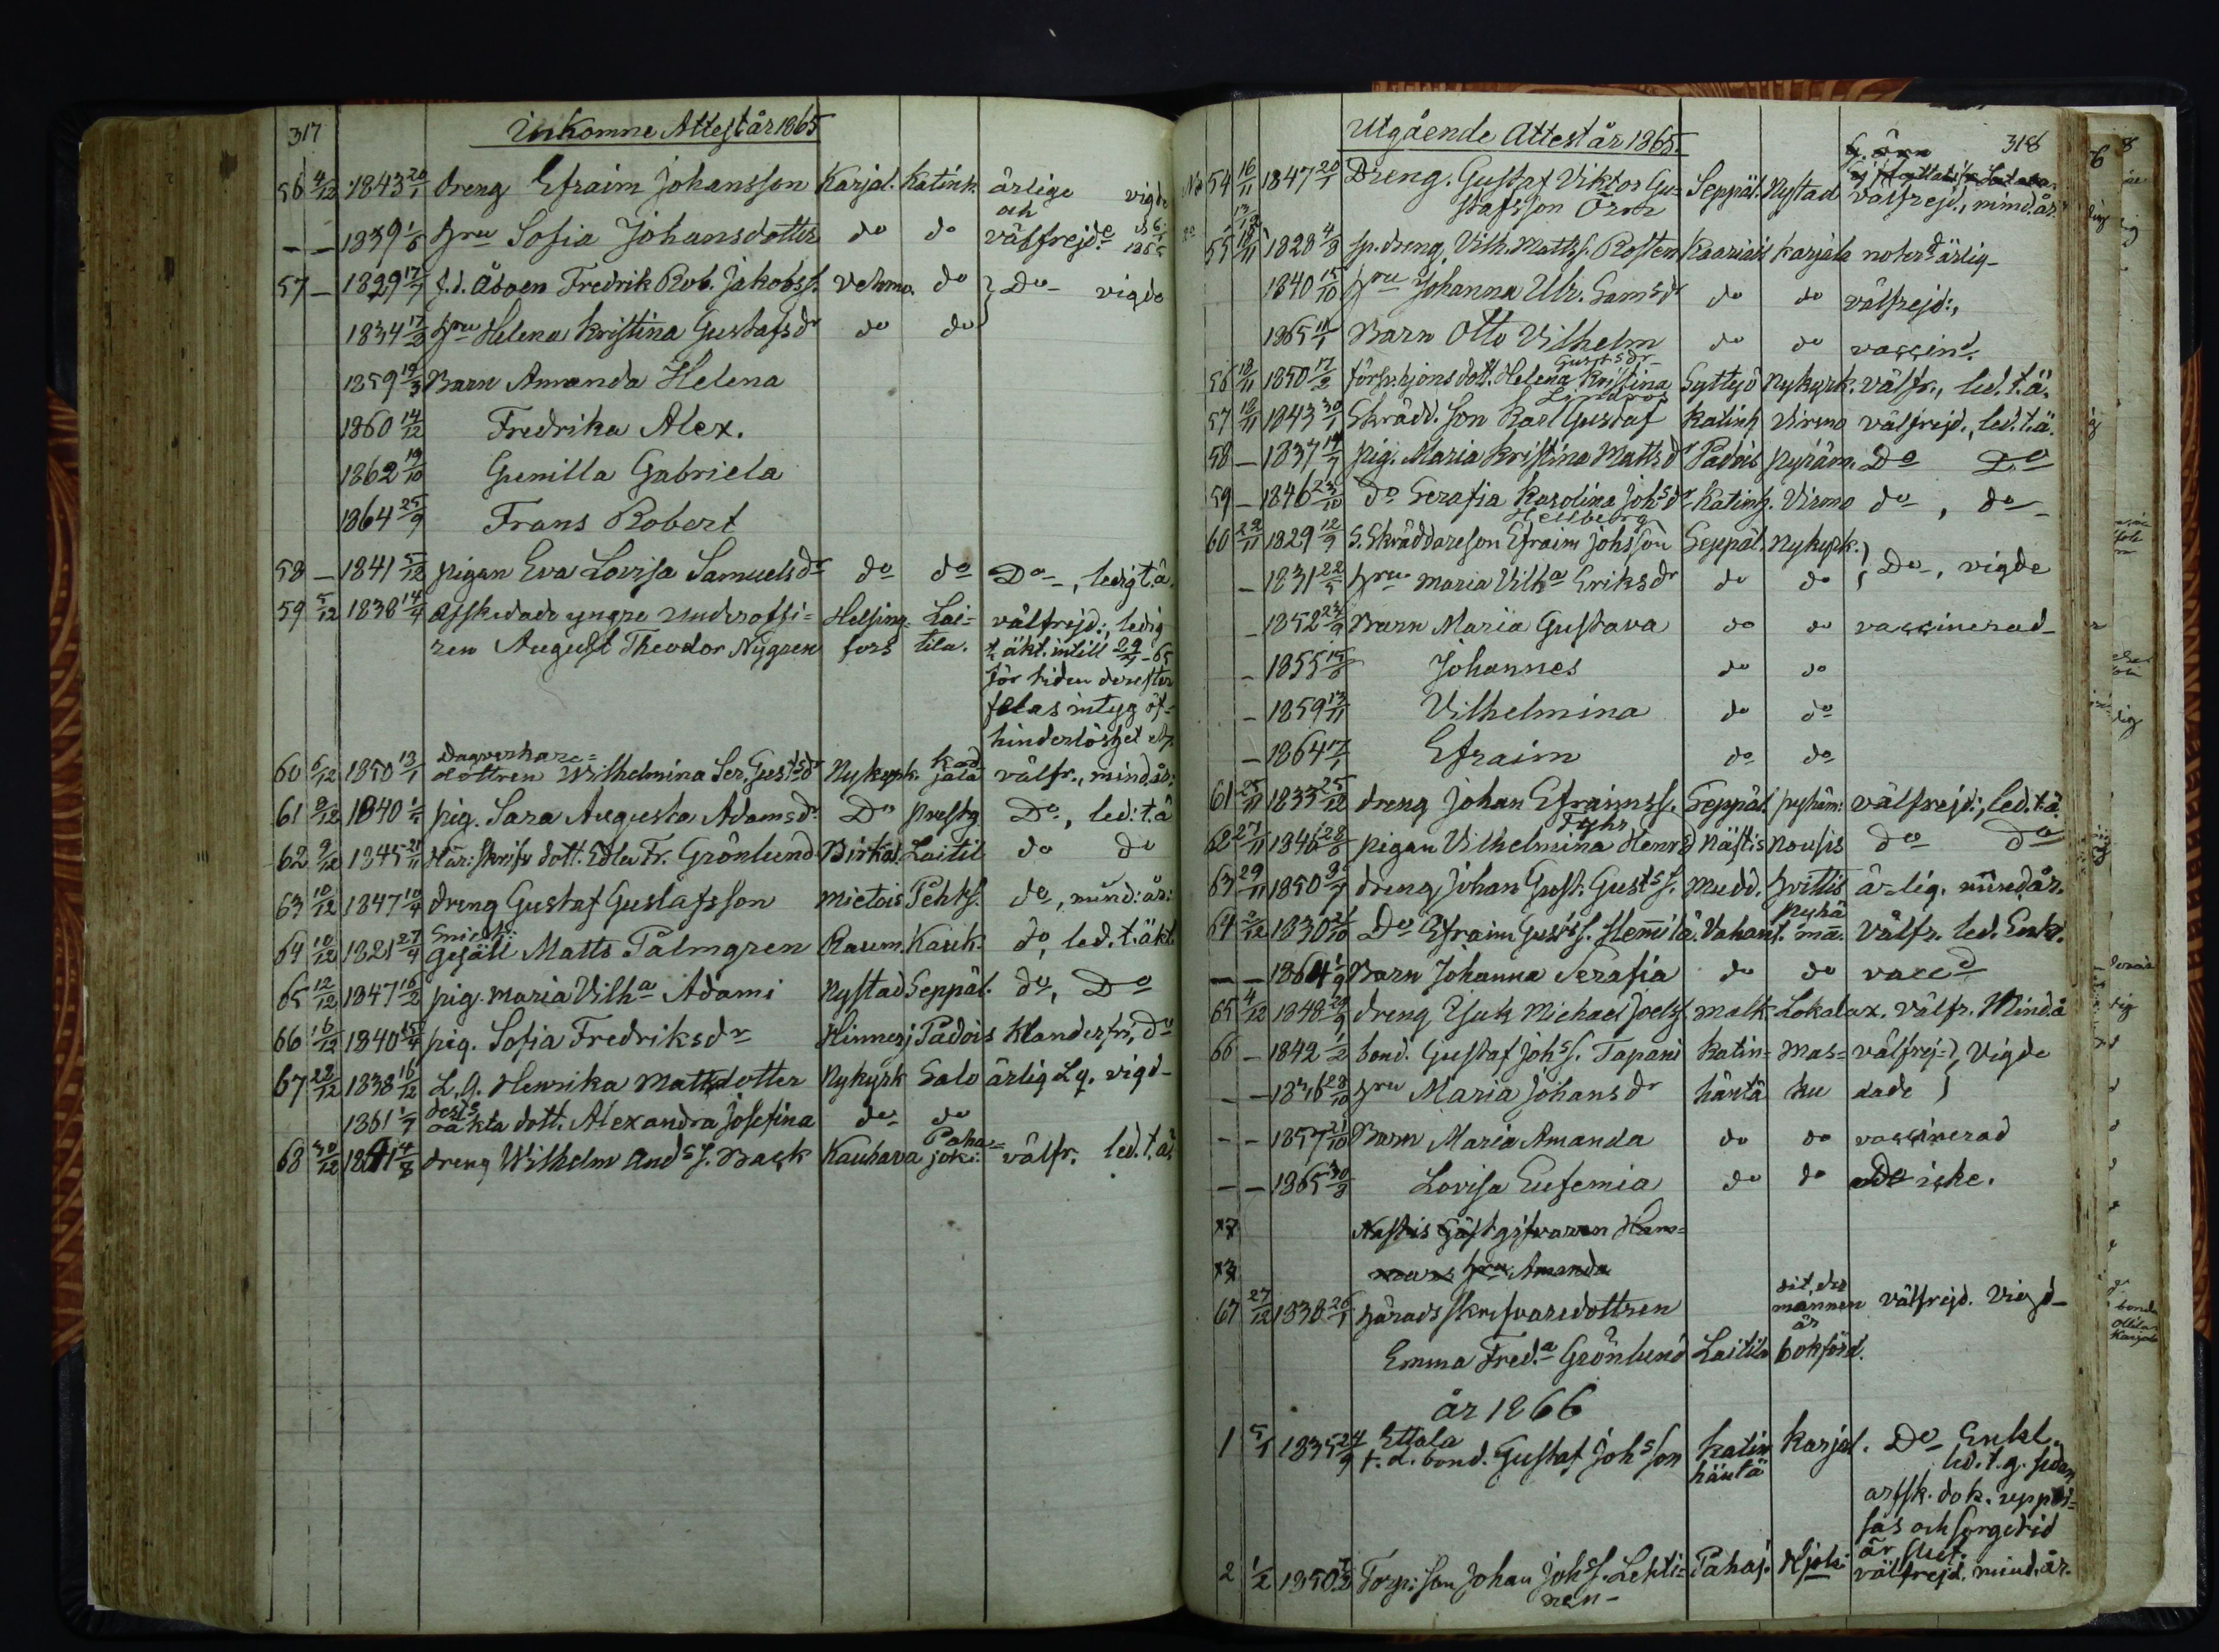 317
Inkomne Attest år 1865
56 4/12 1843 20/1 dreng Efraim Johansson Karjal. Katink. ärlige vigde
och
– – 1839 1/6 hru Sofia Johansdotter do do välfrejde
57 – 1829 17/7 f.d. Åboen Fredrik Rob. Jakobss. Vehmo. do Do vigde
1834 17/2 hru Helena Kristina Gustafsdr do do
1859 19/3 Barn Amanda Helena
1860 14/12 Fredrika Alex.
1862 19/10 Gunilla Gabriela
1864 25/9 Frans Robert
58 – 1841 5/12 pigan Eva Lovisa Samuelsdr do do Do, ledig t.ä.
59 5/12 1838 14/4 Afskedade yngre underoffi= Helsing= Lai= välfrejd:, ledig
ren August Theodor Nygren fors tila. t. äkt. intill 29/4-65
för tiden derefter
felas intyg öf=
hinderlöshet
Dagverkare= Kod
60 6/12 1850 13/1 dottren Wilhelmina Ser. Gustsdr Nykyrk. jala välfr., mind.år:
61 9/12 1840 1/5 pig. Sara Augusta Adamsdr Do prestg Do, led: t.ä
62 9/12 1845 21/11 Här: skrifv dott. Edla Fr. Grönlund Birkal Laitil do do
63 10/12 1847 10/4 dreng Gustaf Gustafsson Mietois Pehks. do, mind: år:
64 10/12 1821 27/4 gesäll Matts Palmgren Raum. Kauk. do, led. t. äkt.
65 12/12 1847 16/2 pig. Maria Vilha Adami Nystad Seppäl. do, Do
66 16/12 1840 15/4 pig. Sofia Fredriksdr Hinneri Padois Klanderfri, do
67 22/12 1838 16/12 L.Q. Henrika Mattsdotter Nykyrk Salo ärlig Lq. vigd–
dess
1861 1/7 oäkta dott. Alexandra Josefina do do
Paha=
68 30/12 1841 4/8 dreng Wilhelm Andss. Back Kauhava joki: välfr. led. t. ä.
Utgående Attest år 1865
318
No 54 16/11 1847 20/7 Dreng. Gustaf Viktor Gu= Seppäl. Nystad välfrejd., mind.år.
stafsson Örn
55 18/11 1828 4/8 sp. dreng, Vilh. Mattss. Rosten Kaariais Karjala noterd ärlig–
1840 15/10 hru Johanna Ulr. Samsdr do do välfrejd:,
1865 11/1 Barn Otto Vilhelm do do vaccind.
Gustsdr
56 18/11 1850 17/2 försp. hjons dott. Helena Kristina Syttyö Nykyrk. välfr., led. t. ä.
Lindroos
57 18/11 1843 30/1 Skrädd. son Karl Gustaf Katink Virmo välfrejd., led. t. ä.
58 – 1837 14/7 pig. Maria Kristina Mattsdr Padois pyhäm. Do Do
59 – 1846 23/10 do Serafia Karolina Johsdr Katink. Virmo do, do
Hellberg
60 22/11 1829 12/9 S. Skräddareson Efraim Johsson Seppäl. Nykyrk. Do, vigde
– 1831 22/5 hru Maria Vilha Eriksdr do do
– 1852 23/9 Barn Maria Gustava do do vaccinerad–
– 1855 15/8 Johannes do do
– 1859 13/11 Vilhelmina do do
– 1864 17/1 Efraim do do
61 25/11 1833 25/12 dreng Johan Efraimss. Seppäl. pyhäm: välfrejd:, led. t.ä
Fyhr
62 27/11 1846 28/8 pigan Vilhelmina Henrsd Nästis Nousis do do
63 29/11 1850 9/7 dreng Johan Gust. Gustss. Mudd. Hvittis ärlig. mind.år.
pyhä
64 2/12 1830 21/10 Do Efraim Gustss. Hemmilä. Vahant. ma. välfr. led. Enkl.
– – 1864 1/9 Barn Johanna Serafia do do vaccd
65 4/12 1848 29/9 dreng Isak Michael Joels. malk Lokalax. välfr. Mind.å
66 – 1842 1/2 bond. Gustaf Johss. Tapani Katin= Mas= välfrej=, Vigde
– – 1836 28/10 hru Maria Johansdr häntä ku dade
– – 1857 21/10 Barn Maria Amanda do do vaccinerad
– – 1865 30/8 Lovisa Eufemia do do do icke.
Nästis Gästgifvaren Ham=
hru Amanda
dit, der
67 27/12 1838 26/1 häradsskrifvaredottren mannen välfrejd. Vigd–
är
Emma Freda Grönlund Laitila bokförd.
år 1866
Ettala
1 5/1 1835 24/9 f. d. bond. Gustaf Johsson Katin Karjal. Do Enkl.
häntä led. t. g. sedan
arfsk. dok. uppvi=
sas och sorgetid
är slut.
2 1/2 1850 Torp: son Johan Johss. Lehti= Pahaj. välfrejd. mind.år.
nen–